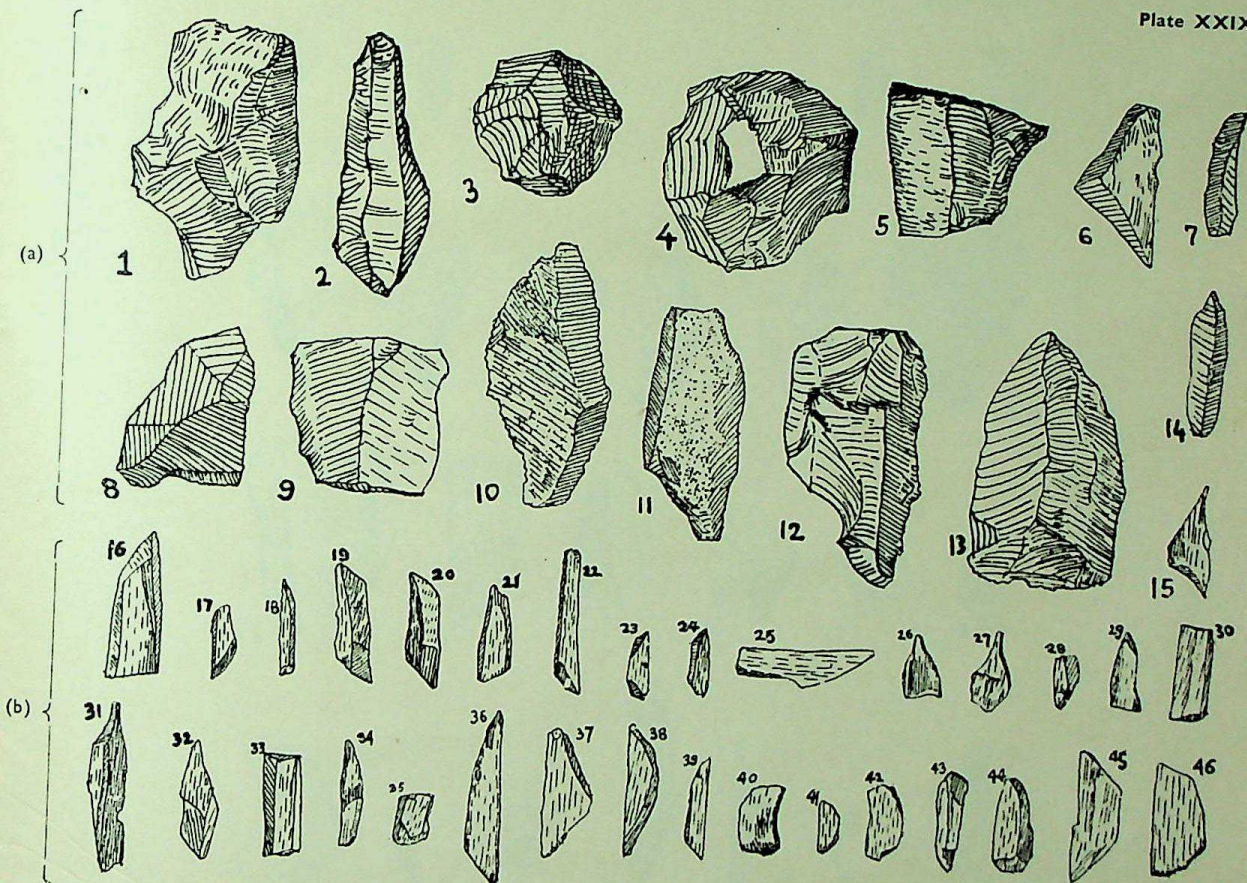 Plate XXIX
(a)
1
2
3
4
5
6
7
8
9
10
11
12
13
14
15
(b)
16
17
18
19
20
21
22
23
24
25
26
27
28
29
30
31
32
33
34
35
36
37
38
39
40
41
42
43
44
45
46